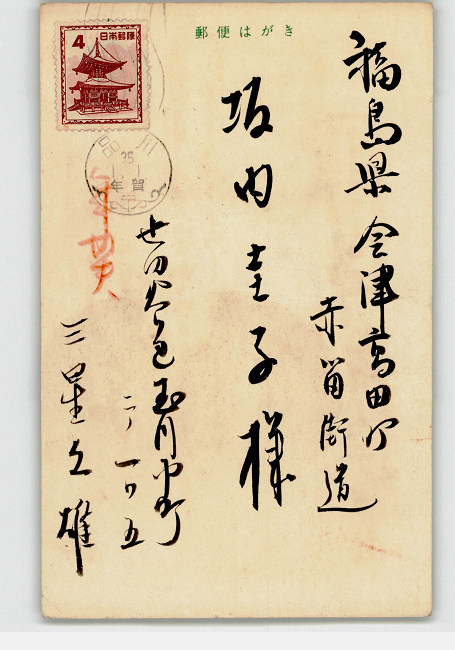 郵便はがき
4 日本郵便
品川
35
1.1
年賀
年賀
福島県会津高田町
赤留街道
坂内圭子様
世田谷区玉川中町
二ノ一〇五
三星
雄